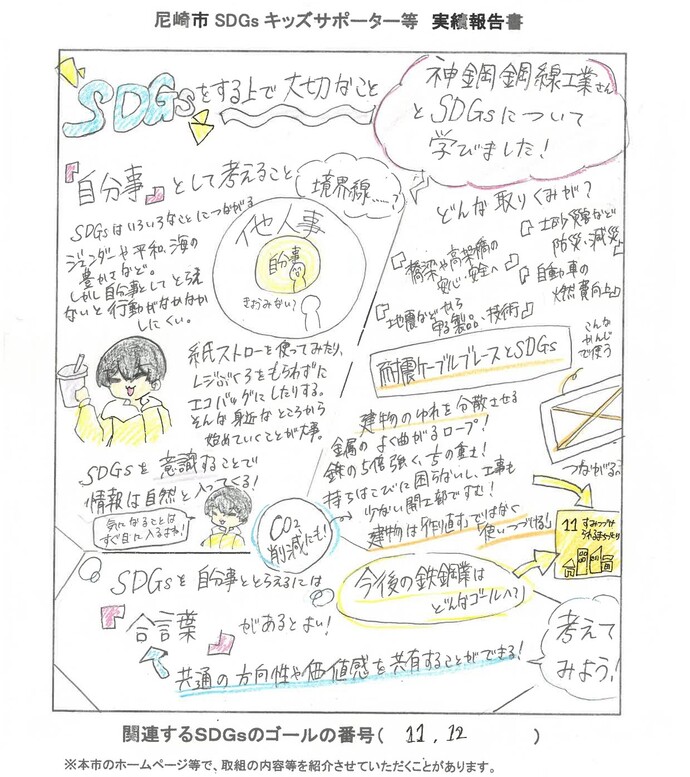 尼崎市 SDGs キッズサポーター等 実績報告書
SDGsをする上で大切なこと
神鋼鋼線工業さん
とSDGsについて
学びました!
『自分事』として考えること
境界線……?
SDGsはいろいろなことにつながる
ジェンダーや平和、海の
豊かさなど。
しかし自分事としてとらえ
ないと行動がなかなか
しにくい。
他人事
自分事
どんな取りくみが?
『土砂災害など
防災、減災』
『橋梁や高架橋の
安心・安全へ』
『自動車の
燃費向上』
『地震などから
守る製品、技術』
紙ストローを使ってみたり、
レジぶくろをもらわずに
エコバッグにしたりする。
そんな身近なところから
始めていくことが大事。
耐震ケーブルブレースとSDGs
こんな
かんじ
で使う
建物のゆれを分散させる
金属のよく曲がるロープ!
鉄の5倍強く、
持ちはこびに困らないし、工事も
少ない
建物は「作り直す」ではなく
「使いつづける」
つながるへ
SDGsを意識することで
情報は自然と入ってくる!
気になることは
すぐ目に入るよね!
CO2
削減にも!
11 すみつづけ
られるまちづくり
今後の鉄鋼業は
どんなゴールへ?
SDGsを自分事ととらえるには
『合言葉』があるとよい!
共通の方向性や価値感を共有することができる!
考えて
みよう!
関連するSDGsのゴールの番号( 11, 12 )
※本市のホームページ等で、取組の内容等を紹介させていただくことがあります。